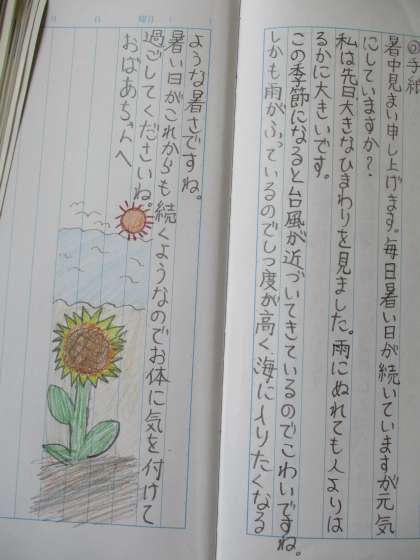 手紙
暑中見まい申し上げます。毎日暑い日が続いていますが元気
にしていますか?
私は先日大きなひまわりを見ました。雨にぬれても人よりは
るかに大きいです。
この季節になると台風が近づいてきているのでこわいですね。
しかも雨がふっているのでしつ度が高く海に入りたくなる
ような暑さですね。
暑い日がこれからも続くようなのでお体に気を付けて
過ごしてくださいね。
おばあちゃんへ
月
日
曜日